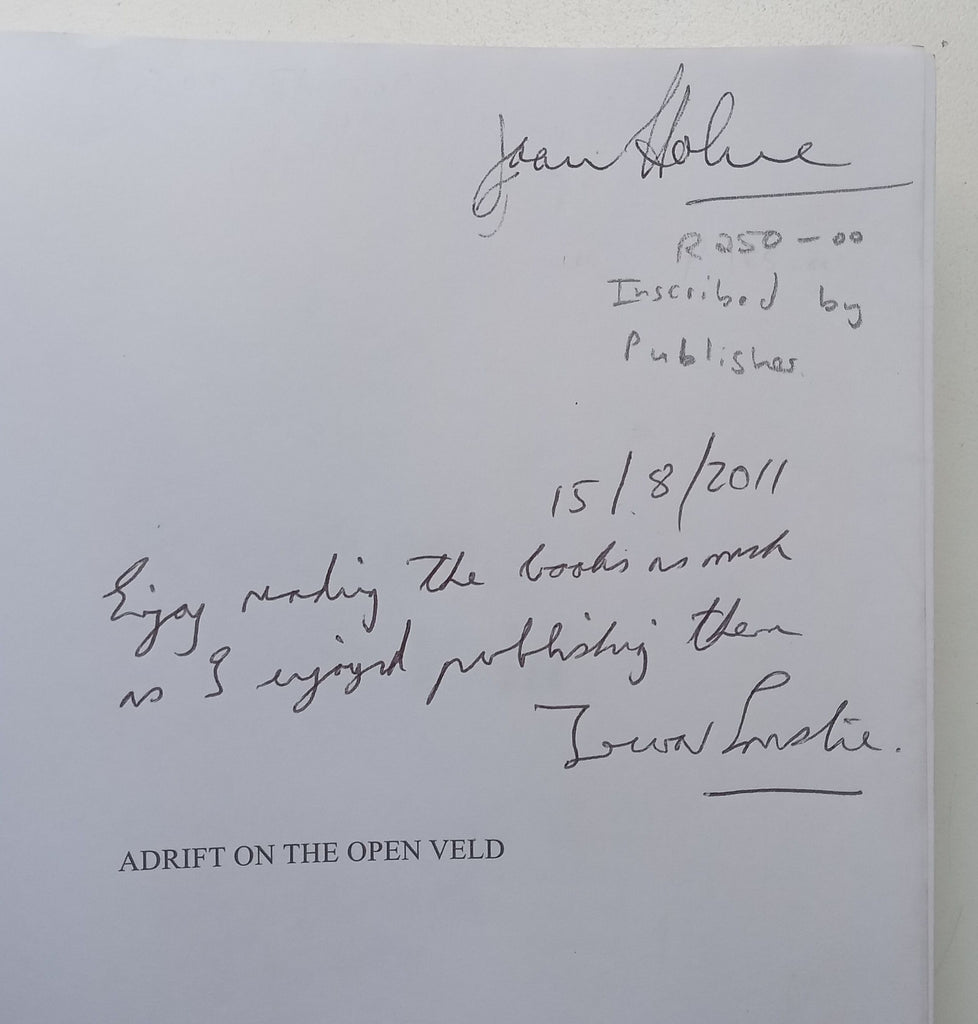 Joan Hohne
R250-00
Inscribed by
Publisher.
15/8/2011
Enjoy reading the books as much
as I enjoyed publishing them
ADRIFT ON THE OPEN VELD